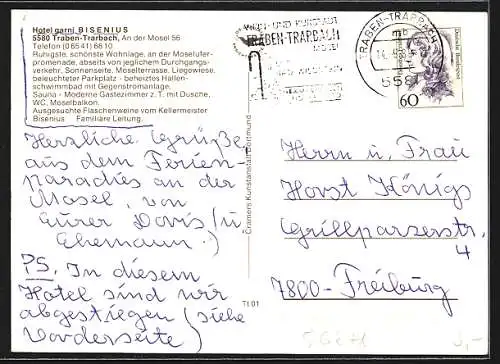 Hotel garni BISENIUS
5580 Traben-Trarbach, An der Mosel 56
Telefon (06541) 6810
Ruhigste, schönste Wohnlage, an der Moselufer-
promenade, abseits von jeglichem Durchgangs-
verkehr, Sonnenseite, Moselterrasse, Liegewiese,
beleuchteter Parkplatz - beheiztes Hallen-
schwimmbad mit Gegenstromanlage.
Sauna - Moderne Gästezimmer z. T. mit Dusche,
WC, Moselbalkon.
Ausgesuchte Flaschenweine vom Kellermeister
Bisenius Familiäre Leitung.
Herzliche Grüße
aus dem Ferien-
paradies an der
Mosel, von
Eurer Doris (u
Ehemann.)
PS. In diesem
Hotel sind wir
abgestiegen (siehe
Vorderseite)
Cramers Kunstanstalt Dortmund
Tt 01
WEIN- UND KURSTADT
TRABEN-TRARBACH
MOSEL
TRABEN-TRARBACH
mb
558
Deutsche Bundespost
60
Herrn u. Frau
Horst Königs
Grillparzerstr.
4
7800-Freiburg